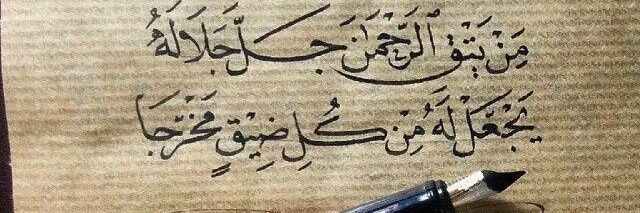 مَنْ يَتَّقِ ٱلرَّحْمَنَ جَلَّ جَلَالَهُ
يَجْعَلْ لَهُ مِنْ كُلِّ ضِيْقٍ مَخْرَجَا